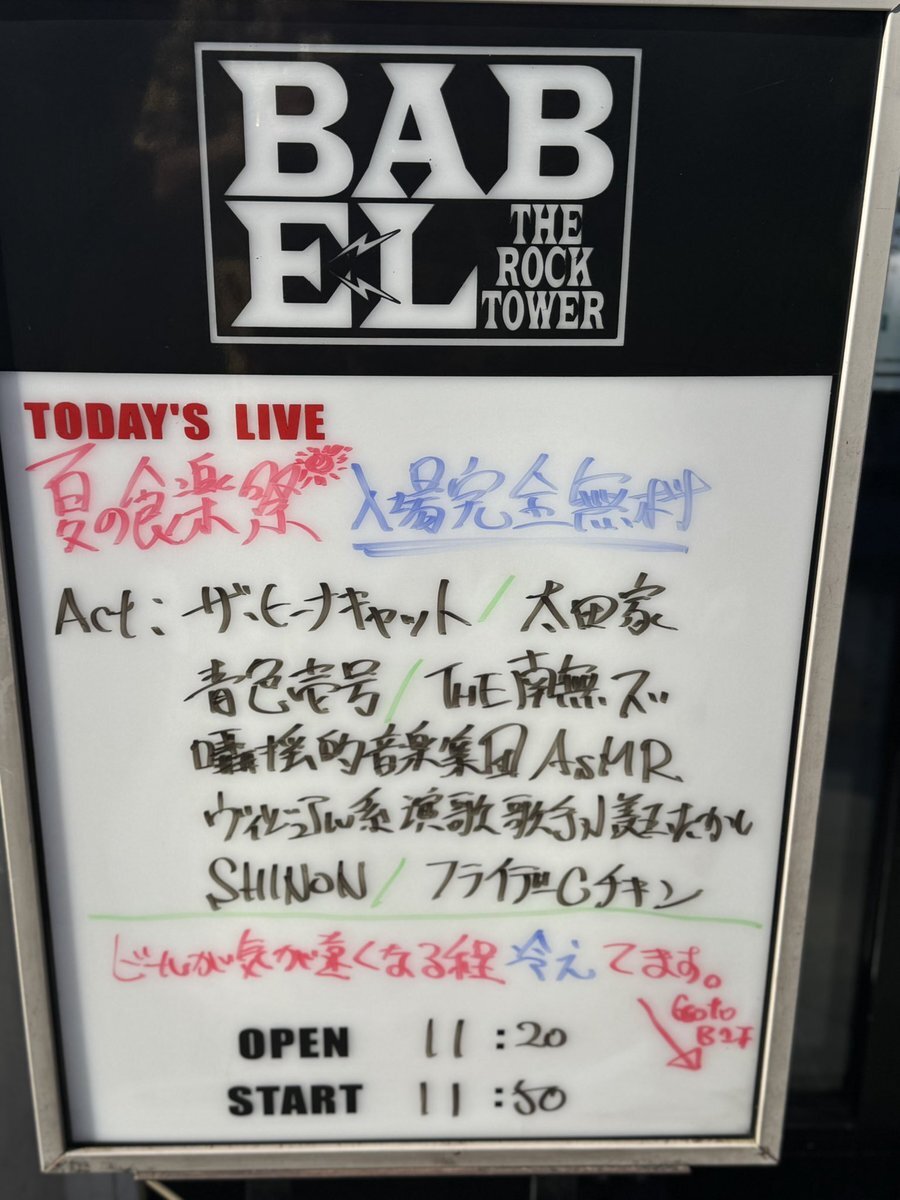 BAB
EL THE ROCK TOWER
TODAY'S LIVE
夏の食楽祭 入場完全無料
Act: ザ・ヒーナキャット / 太田家
青色壱号 / THE南無ズ
的音楽集団 ASMR
ヴィジュアル系演歌歌手 たかし
SHINON / フライデーCチキン
ビールが気が遠くなる程冷えてます。
Go to
B2F
OPEN 11:20
START 11:50